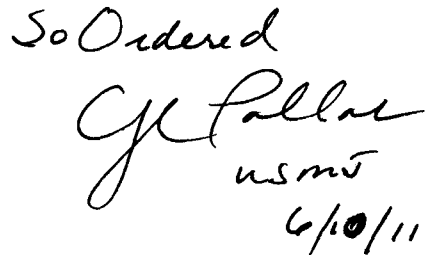 So Ordered
USMJ
6/10/11